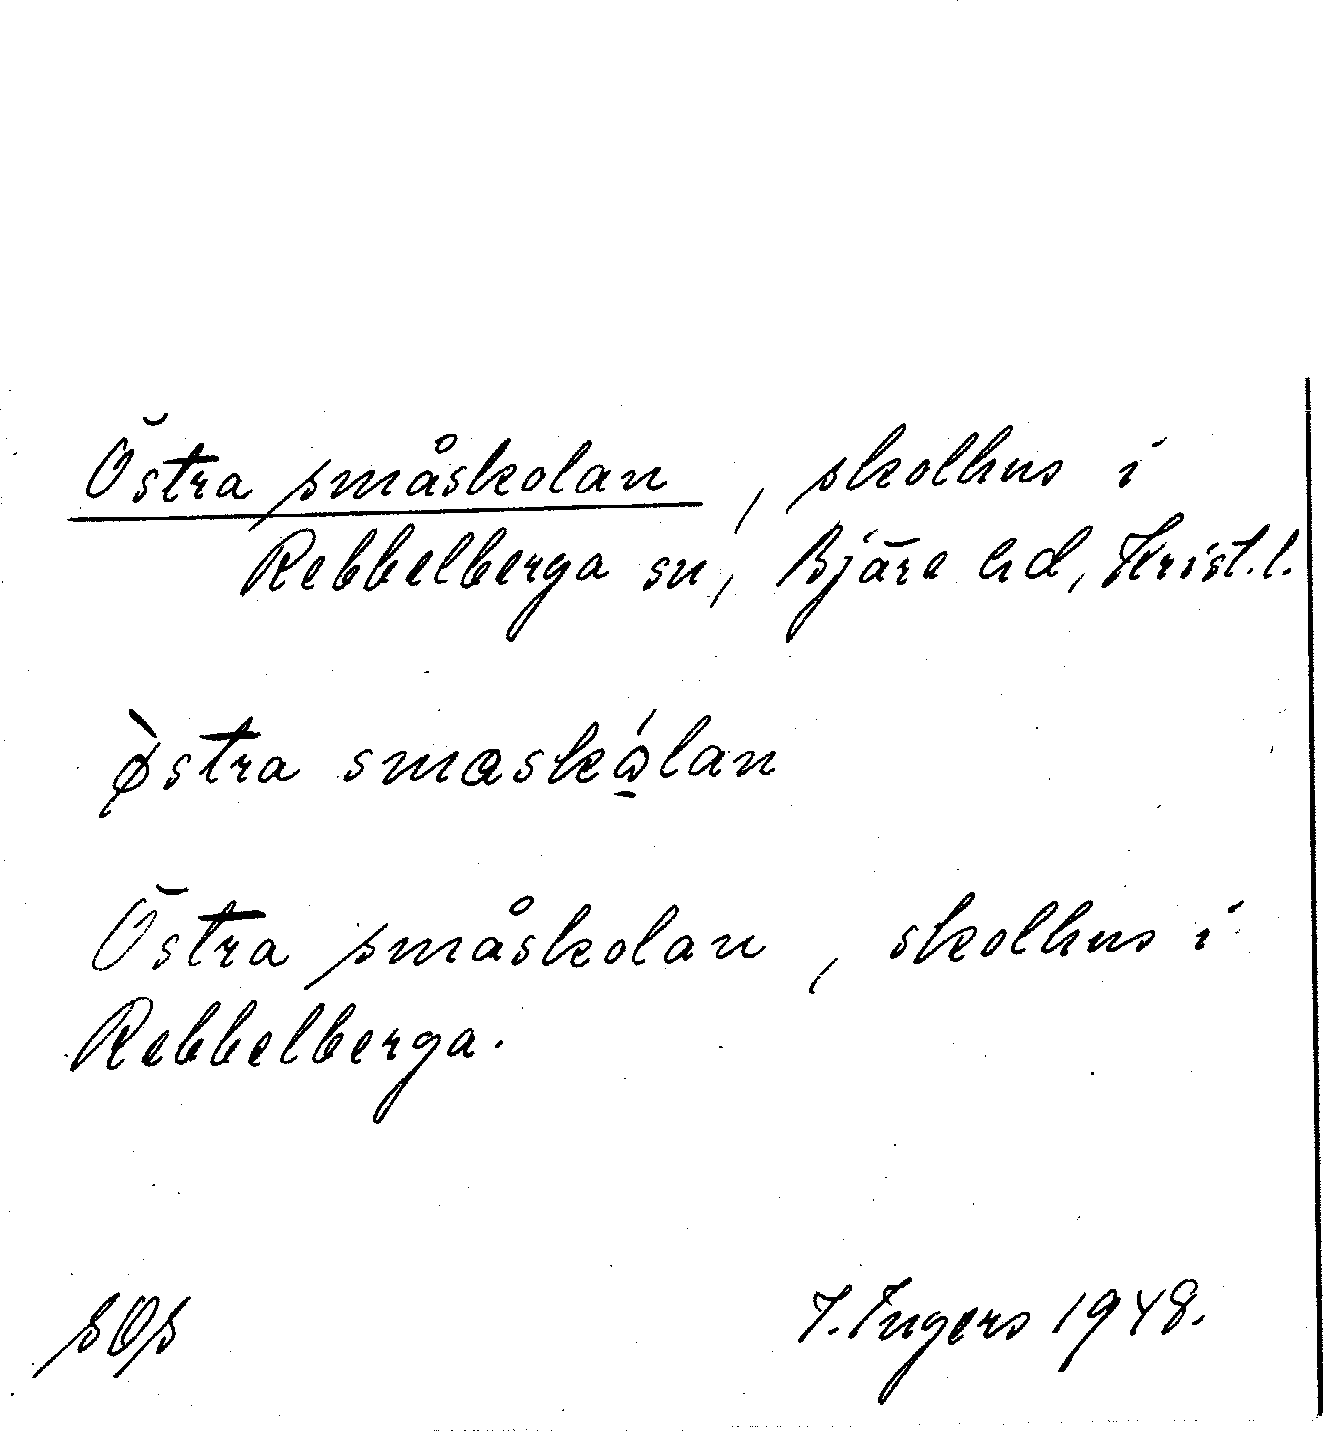 Östra småskolan, skolhus i
Rebbelberga sn, Bjäre hd, Krist. l.
ø̀stra smɑskó̠lan
Östra småskolan, skolhus i
Rebbelberga.
SOS I. Ingers 1948.